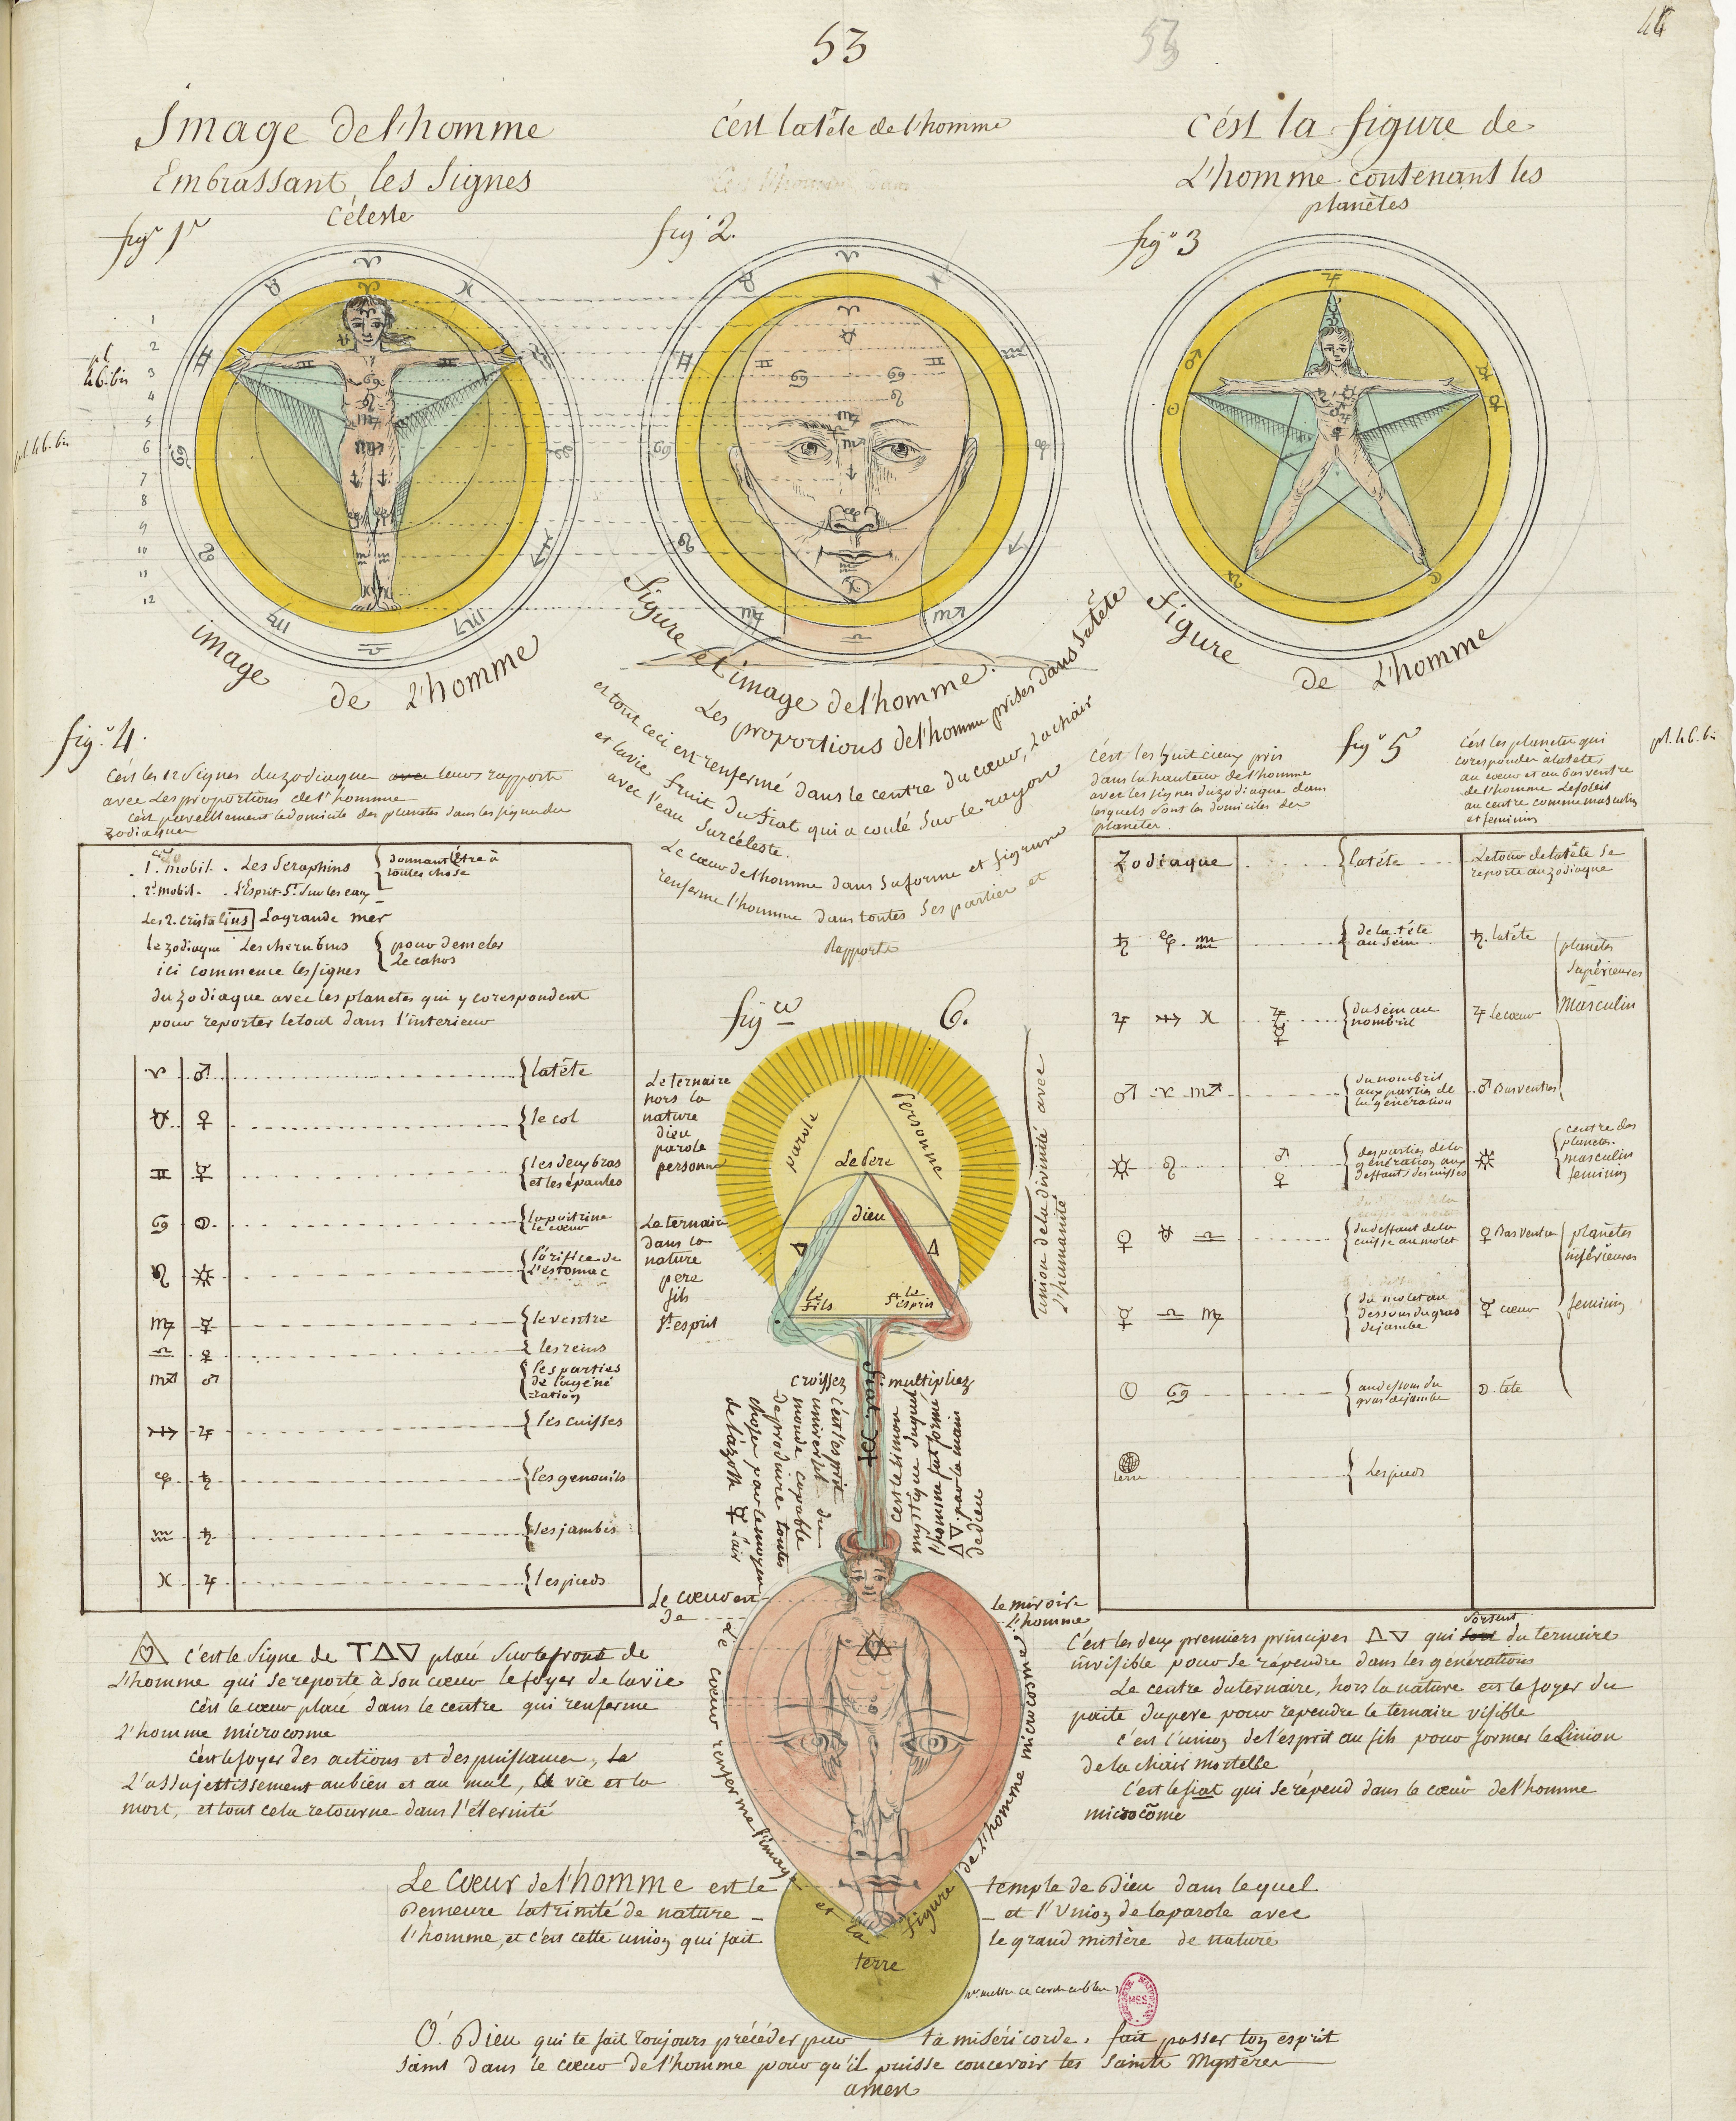 53
53
Image de l'homme
Embrassant les Signes
Céleste
figr 1r
c'est la tête de l'homme
fig 2.
c'est la figure de
L'homme contenant les
planètes
fige 3
♈
♓
♉
♊
♋
♌
♍
♎
1
2
3
4
5
6
7
8
9
10
11
12
pl.
46.bis
pl. 46.bis
image de L'homme
figure et image de l'homme.
Les proportions de l'homme prises dans sa tête
et tout ceci est renfermé dans le centre du cœur, La chair
et la vie fruit du fiat qui a coulé sur le rayon
avec l'eau surcéleste.
Le cœur de l'homme dans sa forme et figure
renferme l'homme dans toutes ses parties et
Rapports
figure de L'homme
fige 4.
c'est les 12 signes du zodiaque avec leurs rapports
avec Les proportions de l'homme
c'est pareillement le domicile des planetes dans les signes du
zodiaque
1er mobil. Les Seraphins { donnant l'Être à
toutes chose
2e mobil. L'Esprit St sur les eaux
Les 2. cristalins La grande mer
le zodiaque Les cherubins { pour demeler
Le cahos
ici commence les signes
du zodiaque avec les planetes qui y corespondent
pour reporter le tout dans l'interieur
♈ ♂ { la tête
♉ ♀ { le col
♊ ☿ { les deux bras
et les épaules
♋ ☽ { la poitrine
le cœur
♌ ☼ { l'orifice de
L'estomac
♍ ☿ { le ventre
♎ ♀ { les reins
♏ ♂ { les parties
de la géné
ration
♐ ♃ { les cuisses
♑ ♄ { les genouils
♒ ♄ { les jambes
♓ ♃ { les pieds
c'est les huit cieux pris
dans la hauteur de l'homme
avec les signes du zodiaque dans
lesquels sont les domiciles des
planetes
fige 5
c'est les planetes qui
corespondent à la tête,
au cœur et au bas ventre
de l'homme Le soleil
au centre comme masculin
et feminin
pl. 46. bis
Zodiaque { la tête Le tour de la tête se
reporte au zodiaque
♄ ♑ ♒ { de la tête
au sein ♄ la tête
♃ ♐ ♓ ♃ ☿ { du sein au
nombril ♃ Le cœur
♂ ♈ ♏ { du nombril
aux parties de
la génération ♂ Bas ventre
planètes
supérieures
Masculin
☼ ♌ ♂ ♀ { des parties de la
génération aux
deffauts des cuisses ☼ { centre des
planetes.
masculin
feminin
♀ ♉ ♎ { du deffaut de la
cuisse au molet ♀ Bas ventre
☿ ♎ ♍ { du molet au
dessous du gras
de jambe ☿ cœur
planètes
inférieures
feminin
☽ ♋ { au dessous du
gras de jambe ☽ tête
terre { Les pieds
fig 6.
Le ternaire
hors la
nature
dieu
parole
personne
Le ternaire
dans la
nature
pere
fils
St esprit
parole
personne
Le Pere
dieu
le
fils
le
St esprit
union de la divinité avec
L'humanité
croissez multipliez
fiat
c'est l'esprit
universel du
monde capable
de produire toutes
choses par le moyen
de l'azoth ☿ l'air
c'est le limon
mystique duquel
l'homme fut formé
△ ▽ par la main
de dieu
Le cœur est le miroire
De L'homme
Le cœur renferme l'image et la figure de l'homme microcosme
terre
△ c'est le signe de T△▽ placé sur le front de
L'homme qui se reporte à son cœur le foyer de la vie
c'est le cœur placé dans le centre qui renferme
L'homme microcosme
c'est le foyer des actions et des puissances,
L'assujettissement au bien et au mal, la vie et la
mort, et tout cela retourne dans l'éternité
C'est les deux premiers principes △▽ qui sortent du ternaire
invisible pour se répendre dans les générations
Le centre du ternaire, hors la nature est le foyer du
pere pour rependre le ternaire visible
c'est l'union de l'esprit au fils pour former le Limon
de la chair mortelle
C'est le fiat qui se répend dans le cœur de l'homme
microcôme
Le Cœur de l'homme est le temple de Dieu dans lequel
Demeure la trinité de nature - - et l'Union de la parole avec
l'homme, et c'est cette union qui fait le grand mistère de nature
Ô. Dieu qui te fait toujours précéder par ta miséricorde. fait passer ton esprit
Saint dans le cœur de l'homme pour qu'il puisse concevoir tes Saints Mystères
amen
MSS